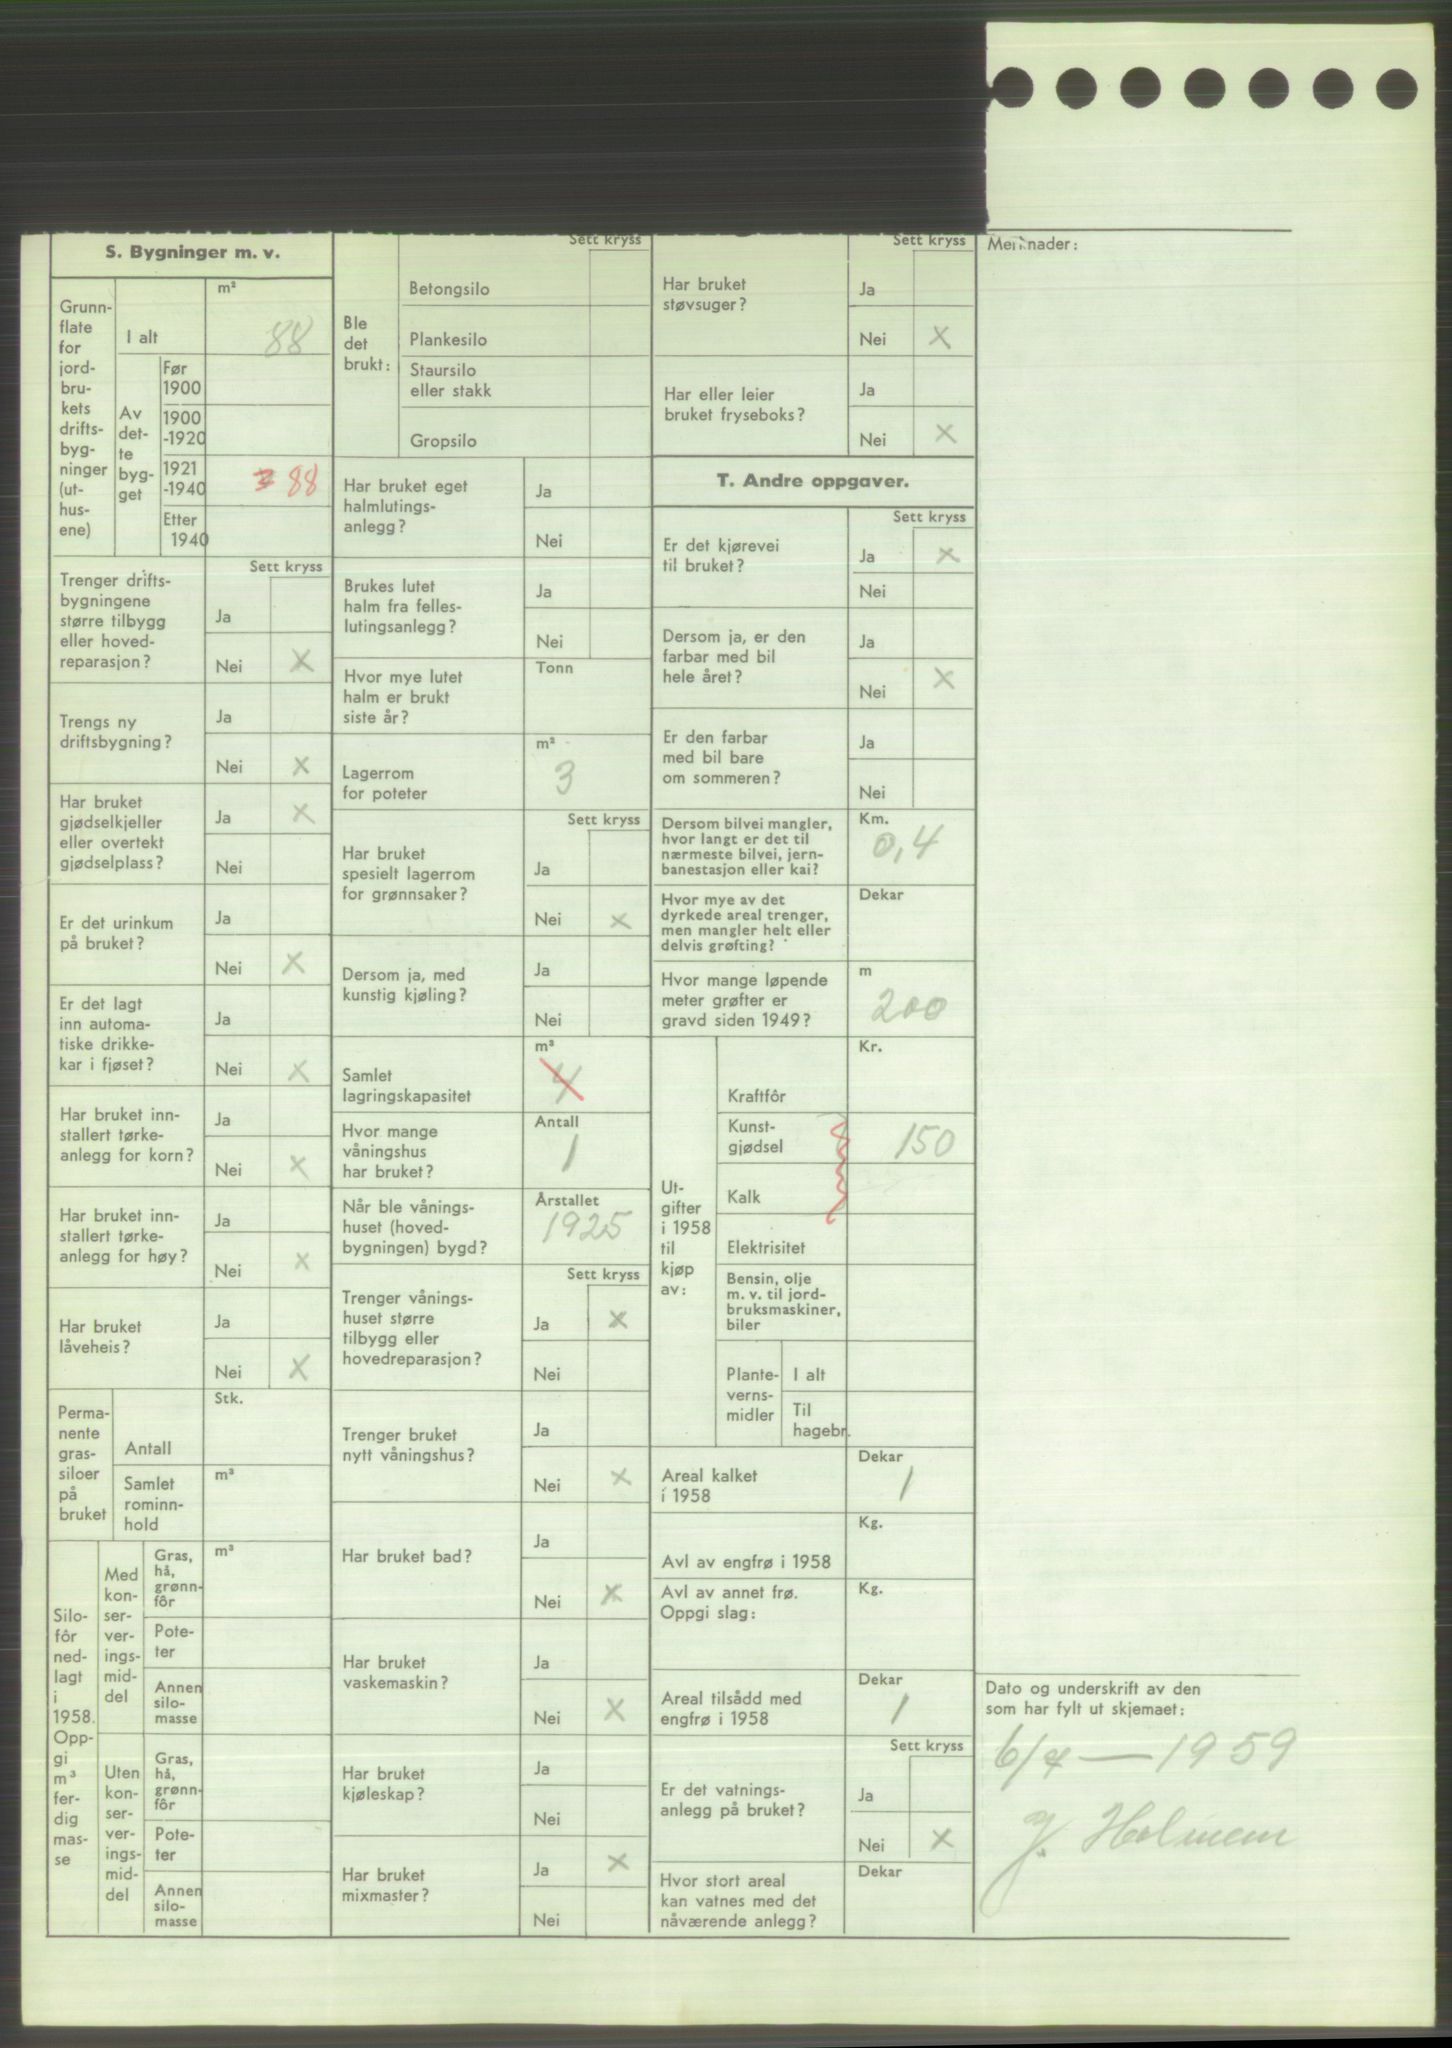 S. Bygninger m. v.
Grunn-
flate
for
jord-
bru-
kets
drifts-
byg-
ninger
(ut-
hus-
ene)
I alt
m²
88
Av
det-
te
byg-
get
Før
1900
1900
-1920
1921
-1940
88
Etter
1940
Sett kryss
Trenger drifts-
bygningene
større tilbygg
eller hoved-
reparasjon?
Ja
Nei X
Trengs ny
driftsbygning?
Ja
Nei X
Har bruket
gjødselkjeller
eller overtekt
gjødselplass?
Ja X
Nei
Er det urinkum
på bruket?
Ja
Nei X
Er det lagt
inn automa-
tiske drikke-
kar i fjøset?
Ja
Nei X
Har bruket inn-
stallert tørke-
anlegg for korn?
Ja
Nei X
Har bruket inn-
stallert tørke-
anlegg for høy?
Ja
Nei X
Har bruket
låveheis?
Ja
Nei X
Perma-
nente
gras-
siloer
på
bruket
Antall
Stk.
Samlet
rominn-
hold
m³
Silo-
fôr
ned-
lagt
i
1958.
Opp-
gi
m³
fer-
dig
mas-
se
Med
kon-
ser-
ver-
ings-
mid-
del
Gras,
hå,
grønn-
fôr
m³
Pote-
ter
Annen
silo-
masse
Uten
kon-
ser-
ver-
ings-
mid-
del
Gras,
hå,
grønn-
fôr
Pote-
ter
Annen
silo-
masse
Ble
det
brukt:
Sett kryss
Betongsilo
Plankesilo
Staursilo
eller stakk
Gropsilo
Har bruket eget
halmlutings-
anlegg?
Ja
Nei
Brukes lutet
halm fra felles-
lutingsanlegg?
Ja
Nei
Hvor mye lutet
halm er brukt
siste år?
Tonn
Lagerrom
for poteter
m²
3
Sett kryss
Har bruket
spesielt lagerrom
for grønnsaker?
Ja
Nei X
Dersom ja, med
kunstig kjøling?
Ja
Nei
Samlet
lagringskapasitet
m³
4
Hvor mange
våningshus
har bruket?
Antall
1
Når ble vånings-
huset (hoved-
bygningen) bygd?
Årstallet
1925
Sett kryss
Trenger vånings-
huset større
tilbygg eller
hovedreparasjon?
Ja X
Nei
Trenger bruket
nytt våningshus?
Ja
Nei X
Har bruket bad?
Ja
Nei X
Har bruket
vaskemaskin?
Ja
Nei X
Har bruket
kjøleskap?
Ja
Nei
Har bruket
mixmaster?
Ja X
Nei
Sett kryss
Har bruket
støvsuger?
Ja
Nei X
Har eller leier
bruket fryseboks?
Ja
Nei X
T. Andre oppgaver.
Sett kryss
Er det kjørevei
til bruket?
Ja X
Nei
Dersom ja, er den
farbar med bil
hele året?
Ja
Nei X
Er den farbar
med bil bare
om sommeren?
Ja
Nei
Dersom bilvei mangler,
hvor langt er det til
nærmeste bilvei, jern-
banestasjon eller kai?
Km.
0,4
Hvor mye av det
dyrkede areal trenger,
men mangler helt eller
delvis grøfting?
Dekar
Hvor mange løpende
meter grøfter er
gravd siden 1949?
m
200
Ut-
gifter
i 1958
til
kjøp
av:
Kr.
Kraftfôr
Kunst-
gjødsel
150
Kalk
Elektrisitet
Bensin, olje
m. v. til jord-
bruksmaskiner,
biler
Plante-
verns-
midler
I alt
Til
hagebr.
Areal kalket
i 1958
Dekar
1
Avl av engfrø i 1958
Kg.
Avl av annet frø.
Oppgi slag:
Kg.
Areal tilsådd med
engfrø i 1958
Dekar
1
Sett kryss
Er det vatnings-
anlegg på bruket?
Ja
Nei X
Hvor stort areal
kan vatnes med det
nåværende anlegg?
Dekar
Merknader:
Dato og underskrift av den
som har fylt ut skjemaet:
6/4 — 1959
J. Holmen